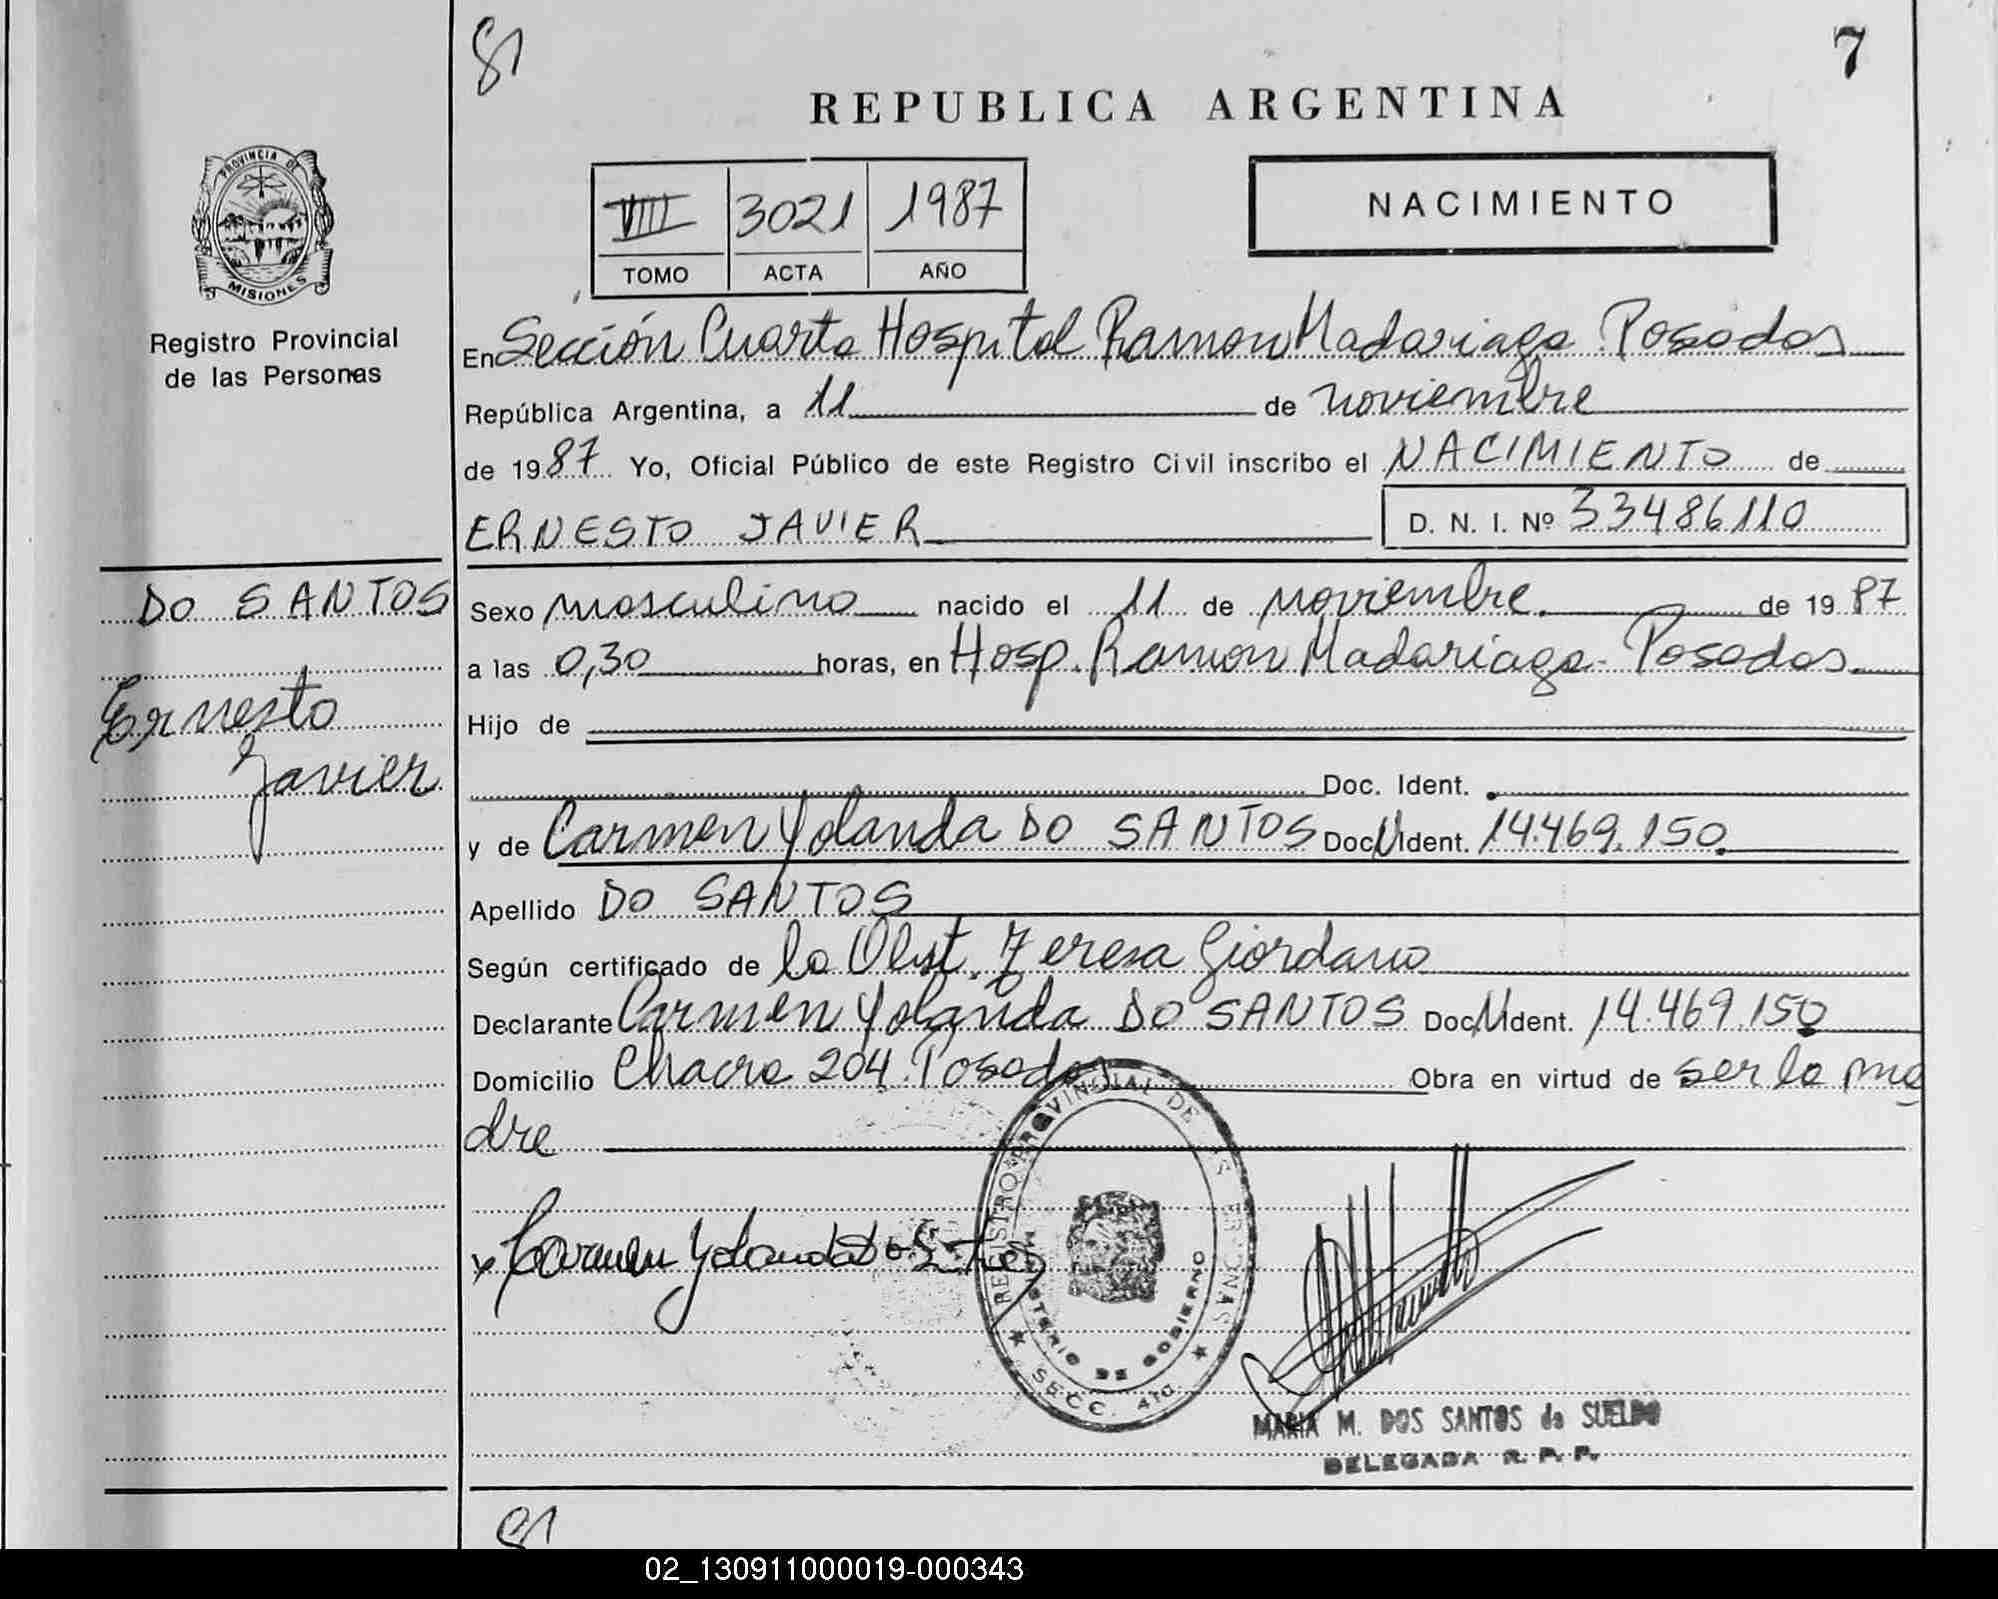 81
7
REPUBLICA ARGENTINA
PROVINCIA DE
MISIONES
Registro Provincial
de las Personas
VIII 3021 1987
TOMO ACTA AÑO
NACIMIENTO
En Sección Cuarta Hospital Ramon Madariaga Posadas
República Argentina, a 11 de noviembre
de 1987 Yo, Oficial Público de este Registro Civil inscribo el NACIMIENTO de
ERNESTO JAVIER D. N. I. Nº 33486110
DO SANTOS
Ernesto
Javier
Sexo masculino nacido el 11 de noviembre. de 1987
a las 0,30 horas, en Hosp. Ramon Madariaga - Posadas.
Hijo de
Doc. Ident.
y de Carmen Yolanda DO SANTOS Doc. Ident. 14.469.150.
Apellido DO SANTOS
Según certificado de la Obst. Teresa Giordano
Declarante Carmen Yolanda DO SANTOS Doc. Ident. 14.469.150
Domicilio Chacra 204. Posadas Obra en virtud de ser la ma
dre
x Carmen Yolanda Do Santos
REGISTRO PROVINCIAL DE LAS PERSONAS
MINISTERIO DE GOBIERNO
SECC. 4ta.
MARIA M. DOS SANTOS de SUELDO
DELEGADA R. P. P.
02_130911000019-000343